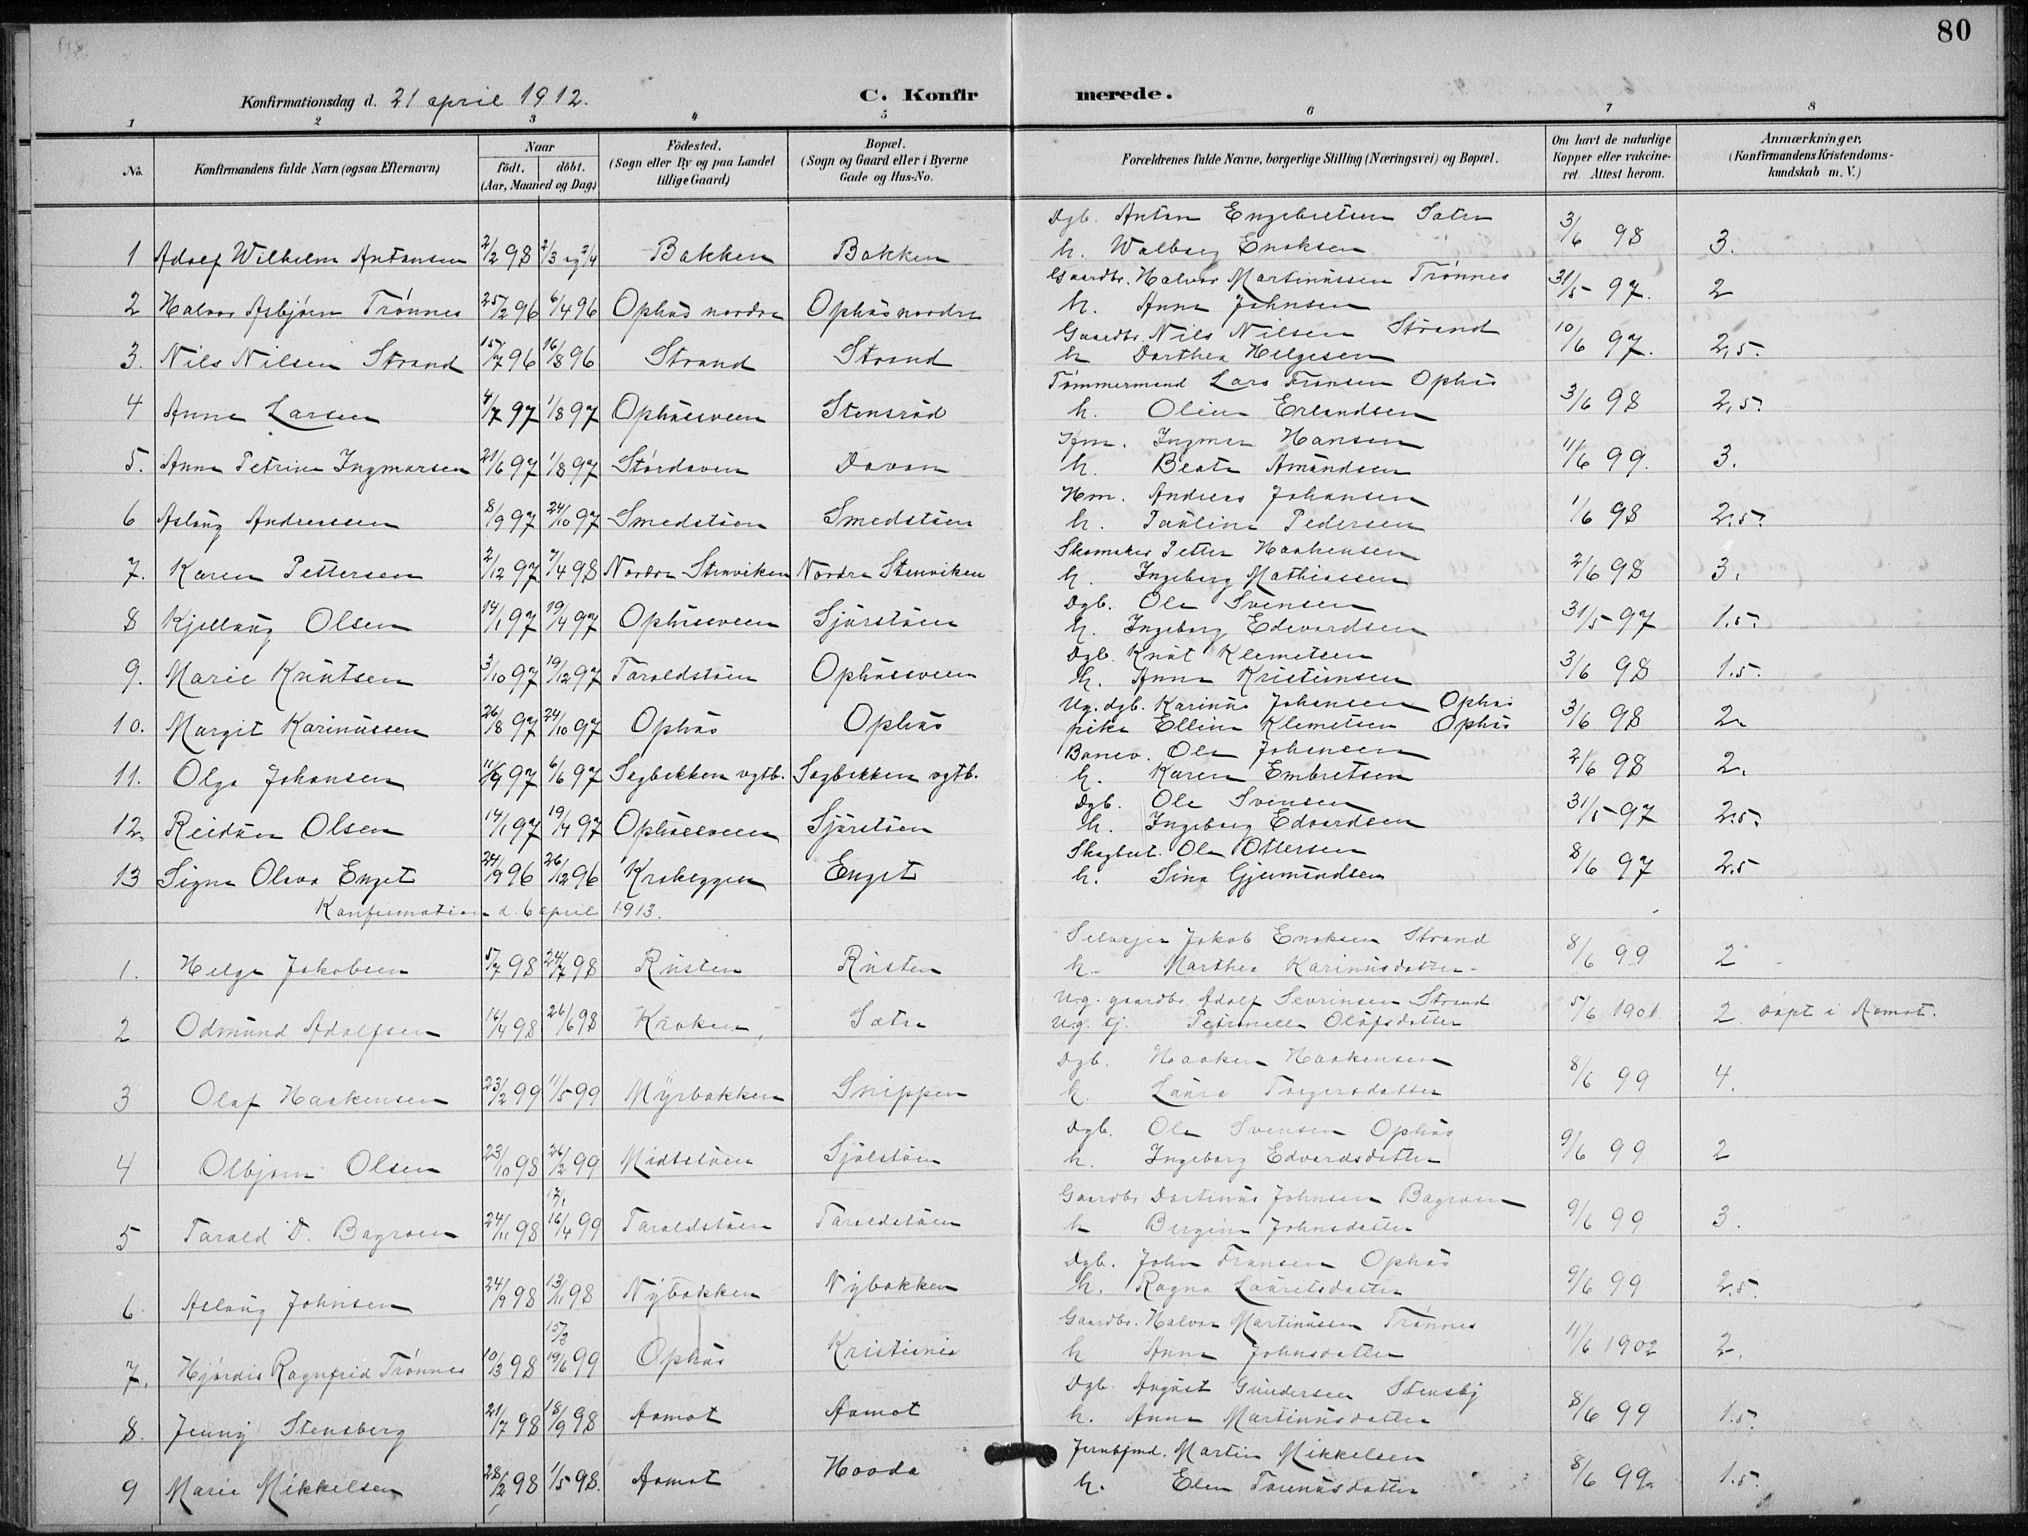 80
Konfirmationsdag d. 21 april 1912. C. Konfirmerede.
1 2 3 4 5 6 7 8
No. Konfirmandens fulde Navn (ogsaa Efternavn) Naar født. døbt. (Aar, Maaned og Dag) Fødested. (Sogn eller By og paa Landet tillige Gaard) Bopæl. (Sogn og Gaard eller i Byerne Gade og Hus-No. Forældrenes fulde Navne, borgerlige Stilling (Næringsvei) og Bopæl. Om havt de naturlige Kopper eller vakcineret. Attest herom. Anmærkninger, (Konfirmandens Kristendomskundskab m. V.)
Dgb. Anton Engebretsen Sætre
1 Adolf Wilhelm Antonsen 2/2 98 2/3 og 2/4 Bakken Bakken h. Walborg Enoksen 3/6 98 3.
Gaardbr. Halvor Martinussen Trønnes
2 Halvor Asbjørn Trønnes 25/2 96 6/4 96 Ophus nordre Ophus nordre h. Anne Johnsen 31/5 97. 2
Gaardbr. Nils Nilsen Strand
3. Nils Nilsen Strand 15/7 96 16/8 96 Strand Strand h Dorthea Helgesen 10/6 97. 2,5.
Tømmermand Lars Fransen Ophus
4 Anne Larsen 4/7 97 1/8 97 Ophusveen Stensrud h. Oline Erlandsen 3/6 98 2,5.
Ingmar Hansen
5. Anna Petrine Ingmarsen 21/6 97 1/8 97 Stordaven Davan h. Beate Amundsen 11/6 99. 3.
Hm. Andreas Johansen
6 Aslaug Andreassen 8/9 97 24/10 97 Smedstuen Smedstuen h. Pauline Pedersen 1/6 98 2.5.
Skomaker Petter Haakensen
7. Karen Pettersen 2/12 97 7/4 98 Nordre Stenviken Nordre Stenviken h. Ingeborg Mathiassen 2/6 98 3.
Dgb. Ole Svensen
8 Kjellaug Olsen 14/1 97 19/4 97 Ophusveen Sjørstuen h. Ingeborg Edevardsen 31/5-97 1.5.
Dgb. Knut Klemetsen
9. Marie Knutsen 3/10 97 19/12 97 Taraldstuen Ophusveen h. Anne Kristiansen 3/6 98 1.5.
Ug. dgb. Karinus Johansen Ophus
10. Margit Karinussen 26/8 97 24/10 97 Ophus Ophus pike Elline Klemetsen Ophus 3/6 98 2.
Banev. Ole Johansen
11. Olga Johansen 11/4 97 6/6 97 Sagbekken vgtb. Sagbekken vgtb. h. Karen Embretsen 2/6 98 2.
Dgb. Ole Svensen
12. Reidun Olsen 14/1 97 19/4 97 Ophusveen Sjørstuen h. Ingeborg Edvardsen 31/5-97 2.5.
Skogbest. Ole Ottersen
13 Signe Olava Enget 24/9 96 26/12 96 Krokeggen Enget h. Sina Gjermundsen 8/6 97 2.5
Konfirmation d. 6 april 1913.
Selveier Jakob Enoksen Strand
1. Helge Jakobsen 5/7 98 24/7 98 Rusten Rusten h. Marthea Karinusdatter. 8/6 99 2
Ug. gaardbr. Adolf Severinsen Strand
2 Odmund Adolfsen 16/4 98 26/6 98 Kroken, Sætre Ug. tj. Petrnelle Olafsdatter 5/6 1901. 2 Døpt i Aamot.
Dgb. Haaken Haakensen
3 Olaf Haakensen 23/2 99 11/5 99 Myrbakken Snippen h. Laura Torgersdatter 8/6 99 4.
Dgb. Ole Svensen Ophus
4 Olbjørn Olsen 23/10 98 26/2 99 Midtstuen Sjølstuen h. Ingeborg Edvardsdatter 9/6 99 2
17/1 Gaardbr Dortinus Johnsen Bagroen
5 Tarald D. Bagroen 24/11 98 16/4 99 Taraldstuen Taraldstuen h Bergine Johnsdatter 9/6 99 3.
Dgb. John Fransen Ophus
6. Aslaug Johnsen 24/9 98 13/11 98 Nybakken Nybakken h. Ragna Lauritsdatter 9/6 99 2.5.
15/3 Gaardbr. Halvor Martinussen Trønnes
7. Hjørdis Ragnfrid Trønnes 10/3 98 19/6 99 Ophus Kristiania h Anne Johnsdatter 11/6 1902 2.
Dgb. August Gundersen Stensby
8. Jenny Stensberg 21/7 98 18/9 98 Aamot Aamot h. Anna Martinusdatter 8/6 99 1.5.
Jernbfmd. Martin Mikkelsen
9 Marie Mikkelsen 28/2 98 1/5 98. Aamot Hovda h. Elen Torenusdatter 8/6 99. 1.5.